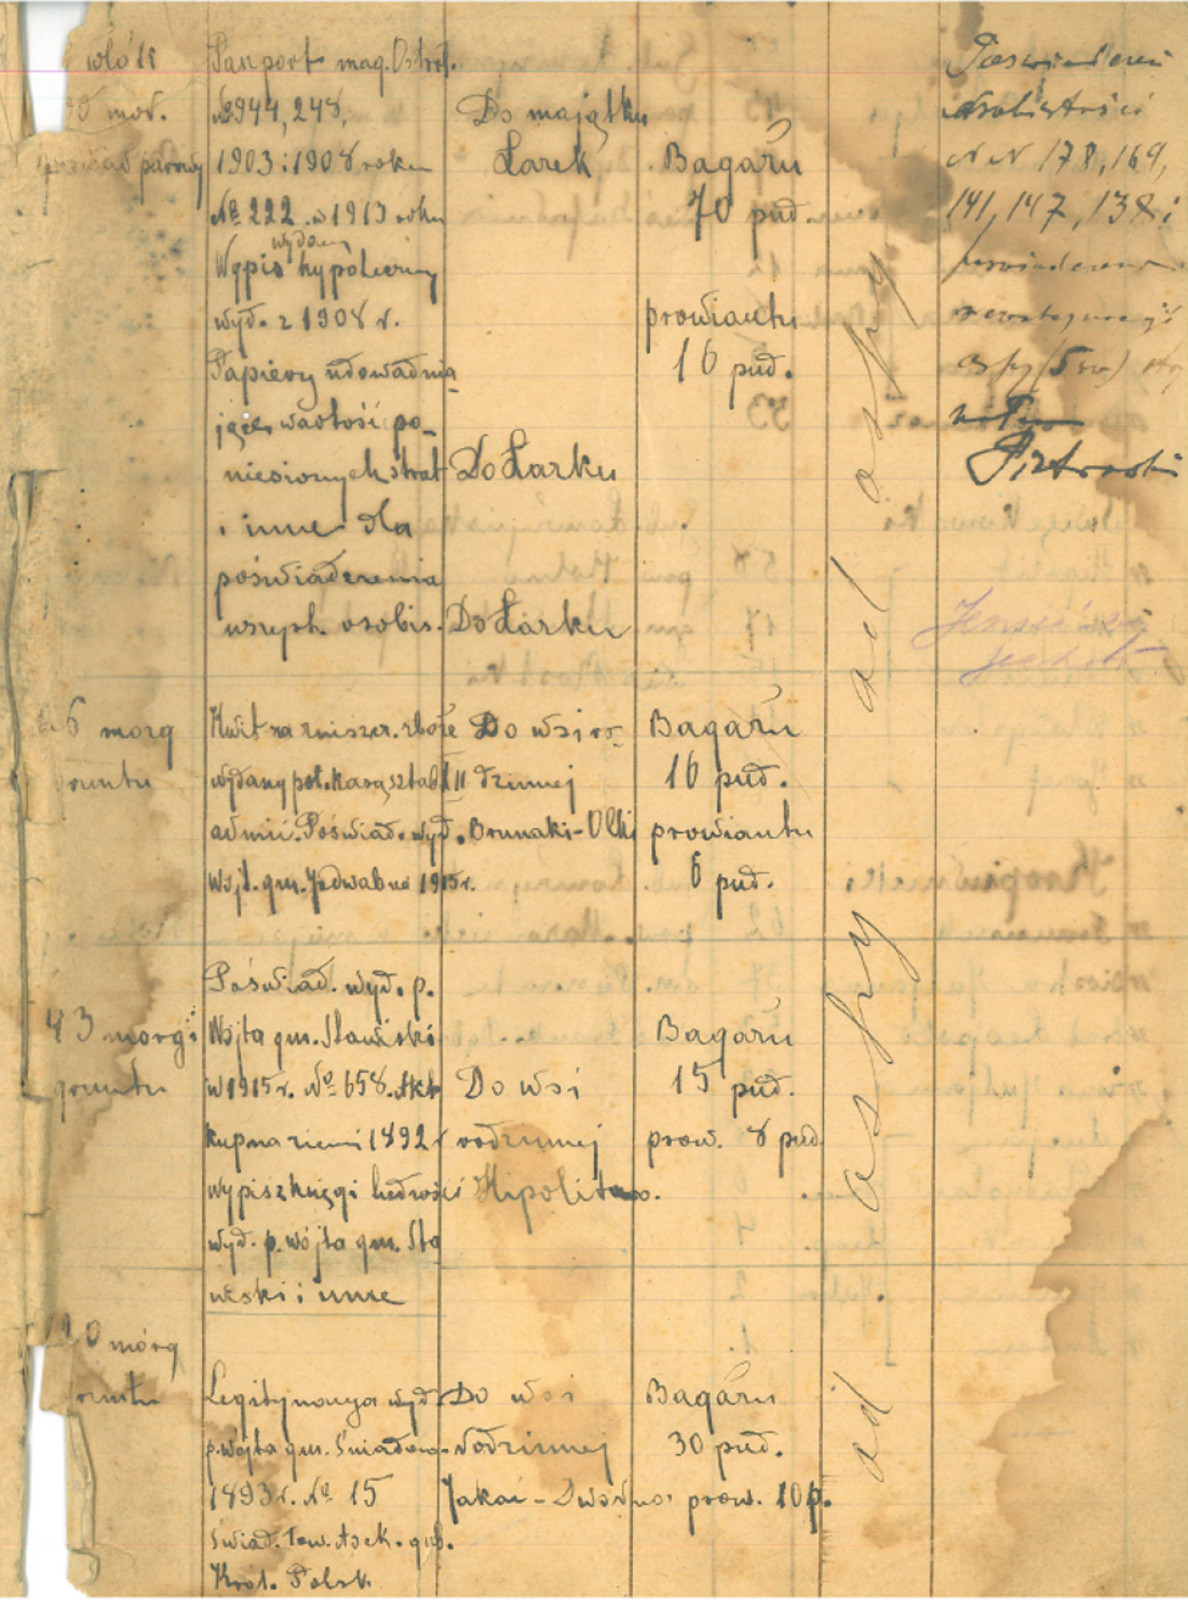 włók
Paszport mag. Ostroł.
mor.
№ 944, 248,
Do majątku
parowy
1903 i 1908 roku
Łarek
Bagażu
№ 222 w 1913 roku
70 pud.
wydany
Wypis hypoteczny
wyd. z 1908 r.
prowiantu
Papiery udowadnia-
16 pud.
jące wartość po-
niesionych strat
Do Łarku
i inne dla
poświadczenia
wszyst. osobis.
Do Łarku
Poświadczeń
osobistości
NN 178, 169,
141, 147, 138 i
Aspy (5 sw)
Piotrowski
ad aspy
6 morg
gruntu
Kwit na zniszcz. zboże
wydany pol. kasą sztab. II
admin. Poświad. wyd.
Wójt. gm. Jedwabne 1915 r.
Do wsi ro-
dzinnej
Brunaki-Olki
Bagażu
16 pud.
prowiantu
6 pud.
43 morgi
gruntu
Poświad. wyd. p.
Wójta gm. Stawiski
w 1915 r. № 658. Akt
kupna ziemi 1892 r
wypis z księgi ludności
wyd. p. wójta gm. Sta
wiski i inne
Do wsi
rodzinnej
Hipolitowo.
Bagażu
15 pud.
prow. 8 pud.
ad aspy
0 mórg
gruntu
Legitymacya wyd.
p. wójta gm. Śniadowo
1893 r. № 15
Świad. Tow. Asek. gub.
Król. Polsk.
Do wsi
rodzinnej
Jakać-Dworna.
Bagażu
30 pud.
prow. 10 p.